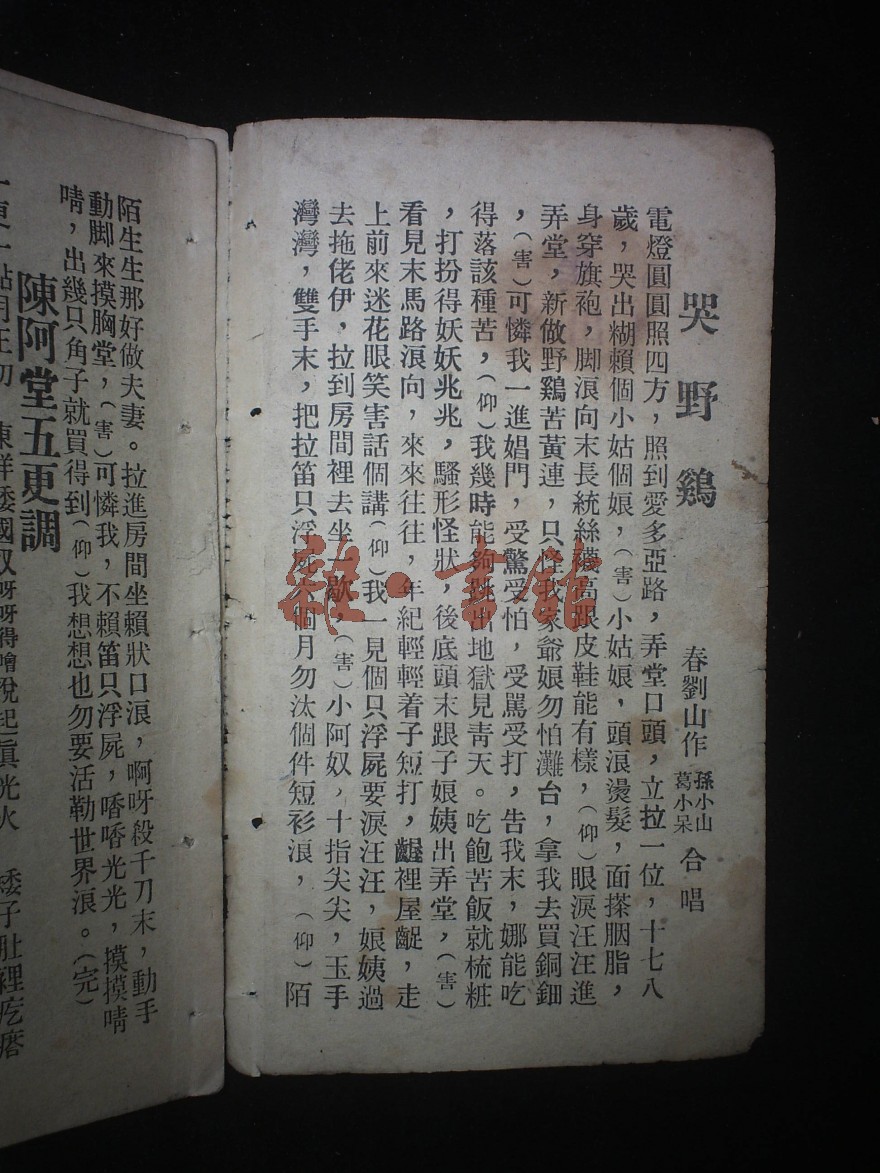 哭野鷄
春劉山作 孫小山 葛小呆 合唱
電燈圓圓照四方，照到愛多亞路，弄堂口頭，立拉一位，十七八
歲，哭出糊賴個小姑個娘，（害）小姑娘，頭浪燙髮，面搽胭脂，
身穿旗袍，脚浪向末長統絲襪高跟皮鞋能有樣，（仰）眼淚汪汪進
弄堂，新做野鷄苦黃連，只怪我家爺娘勿怕灘台，拿我去買銅鈿
，（害）可憐我一進娼門，受驚受怕，受罵受打，告我末，娜能吃
得落該種苦，（仰）我幾時能夠跳出地獄見靑天。吃飽苦飯就梳粧
，打扮得妖妖兆兆，騷形怪狀，後底頭末跟子娘姨出弄堂，（害）
看見末馬路浪向，來來往往，年紀輕輕着子短打，齷裡屋齪，走
上前來迷花眼笑害話個講（仰）我一見個只浮屍要淚汪汪，娘姨過
去拖佬伊，拉到房間裡去坐一歇，（害）小阿奴，十指尖尖，玉手
灣灣，雙手末，把拉笛只浮屍六個月勿汰個件短衫浪，（仰）陌
陌生生那好做夫妻。拉進房間坐賴狀口浪，啊呀殺千刀末，動手
動脚來摸胸堂，（害）可憐我，不賴笛只浮屍，噷噷光光，摸摸啨
啨，出幾只角子就買得到（仰）我想想也勿要活勒世界浪。（完）
陳阿堂五更調